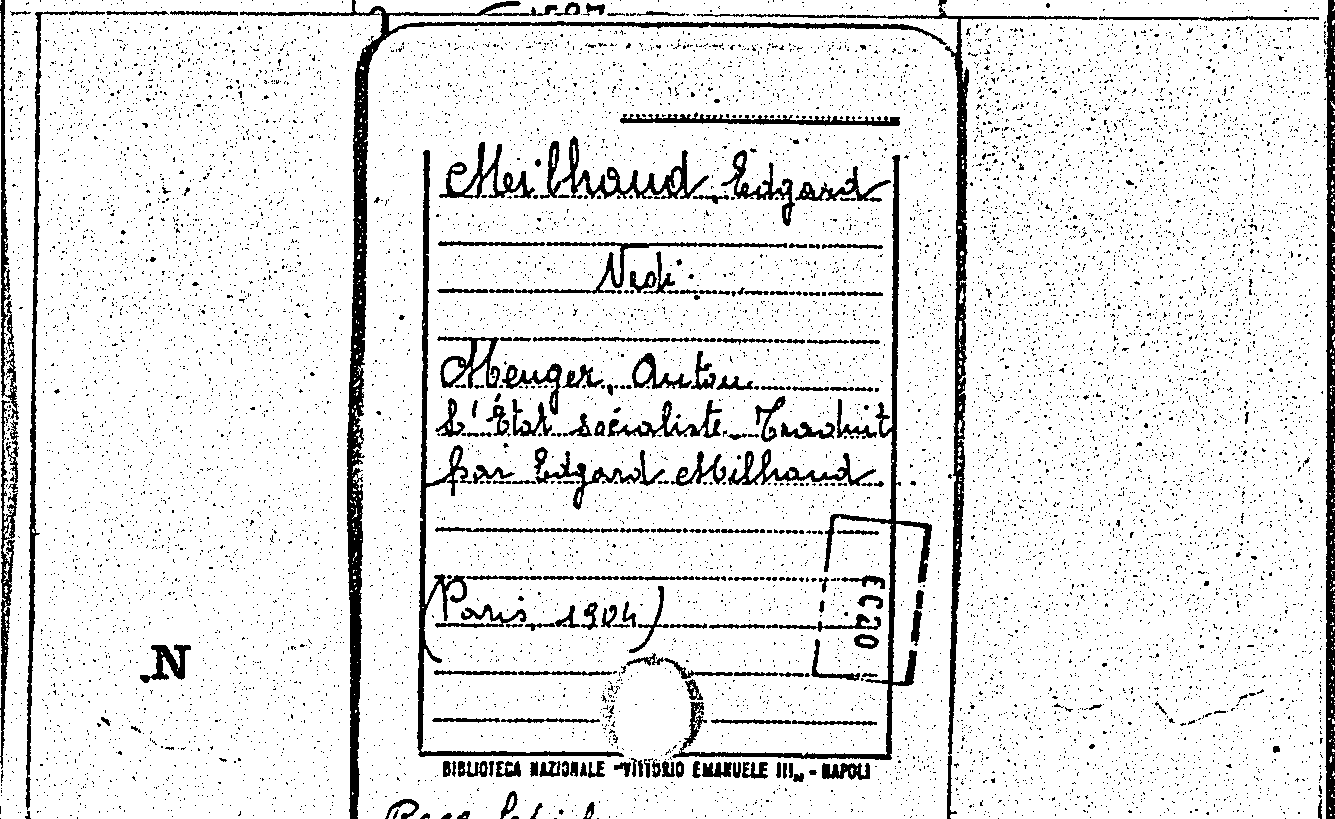 Meilhaud, Edgard
Vedi:
Menger, Anton.
L'État socialiste. Traduit
par Edgard Milhaud
(Paris, 1904)
EC20
.N
BIBLIOTECA NAZIONALE "VITTORIO EMANUELE III„ - NAPOLI